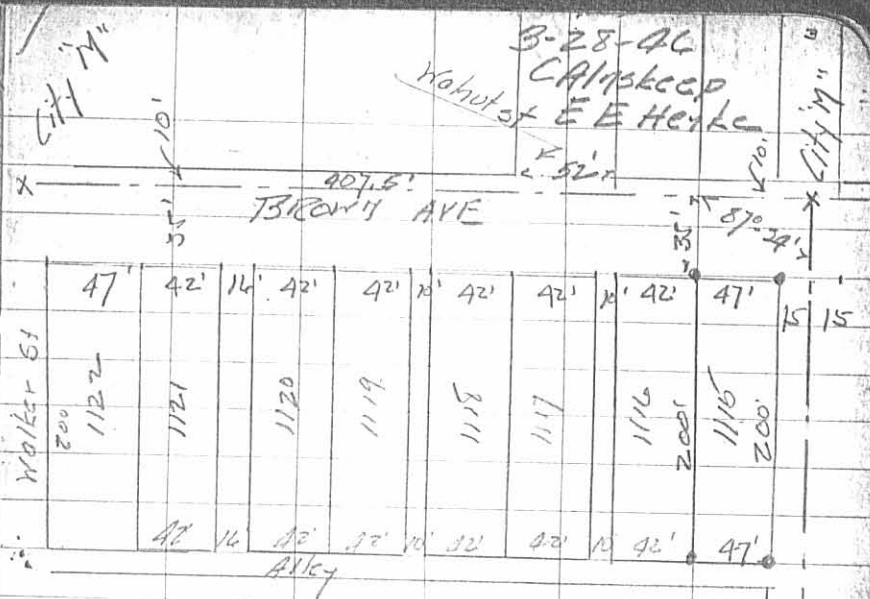 City "M"
3-28-46
CAInskeep
Walnut st E E Henke
City "M"
10'
407.5'
52'
10'
BROWN AVE
35'
35'
87° 24'
47' 42' 16' 42' 42' 10' 42' 42' 10' 42' 47'
15 15
Walker St
200
1122
1121
1120
1119
1118
1117
1116
200'
1115
200'
42' 16' 42' 42' 10' 42' 42' 10 42' 47'
Alley